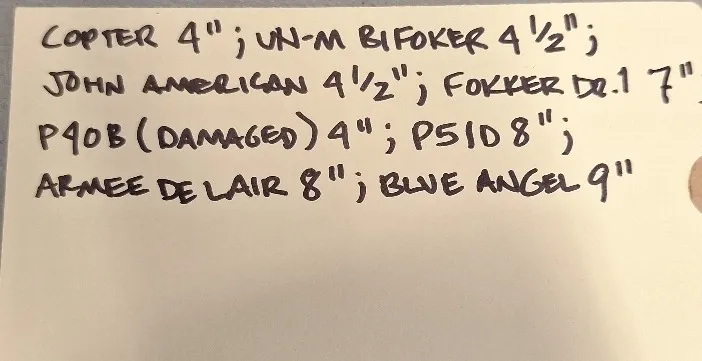 COPTER 4"; UN-M BIFOKER 4 1/2";
JOHN AMERICAN 4 1/2"; FOKKER DR.1 7"
P40B (DAMAGED) 4"; P51D 8";
ARMEE DE LAIR 8"; BLUE ANGEL 9"